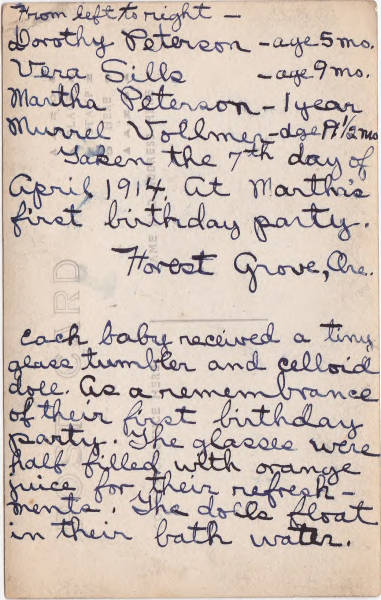 From left to right –
Dorothy Peterson – age 5 mo.
Vera Sills – age 9 mo.
Martha Peterson – 1 year
Murrel Vollmer – age 9 1/2 mo
Taken the 7th day of
April 1914. At Martha's
first birthday party.
Forest Grove, Ore.
Each baby received a tiny
glass tumbler and celloid
doll. As a remembrance
of their first birthday
party. The glasses were
half filled with orange
juice for their refresh-
ments. The dolls float
in their bath water.
POST CARD